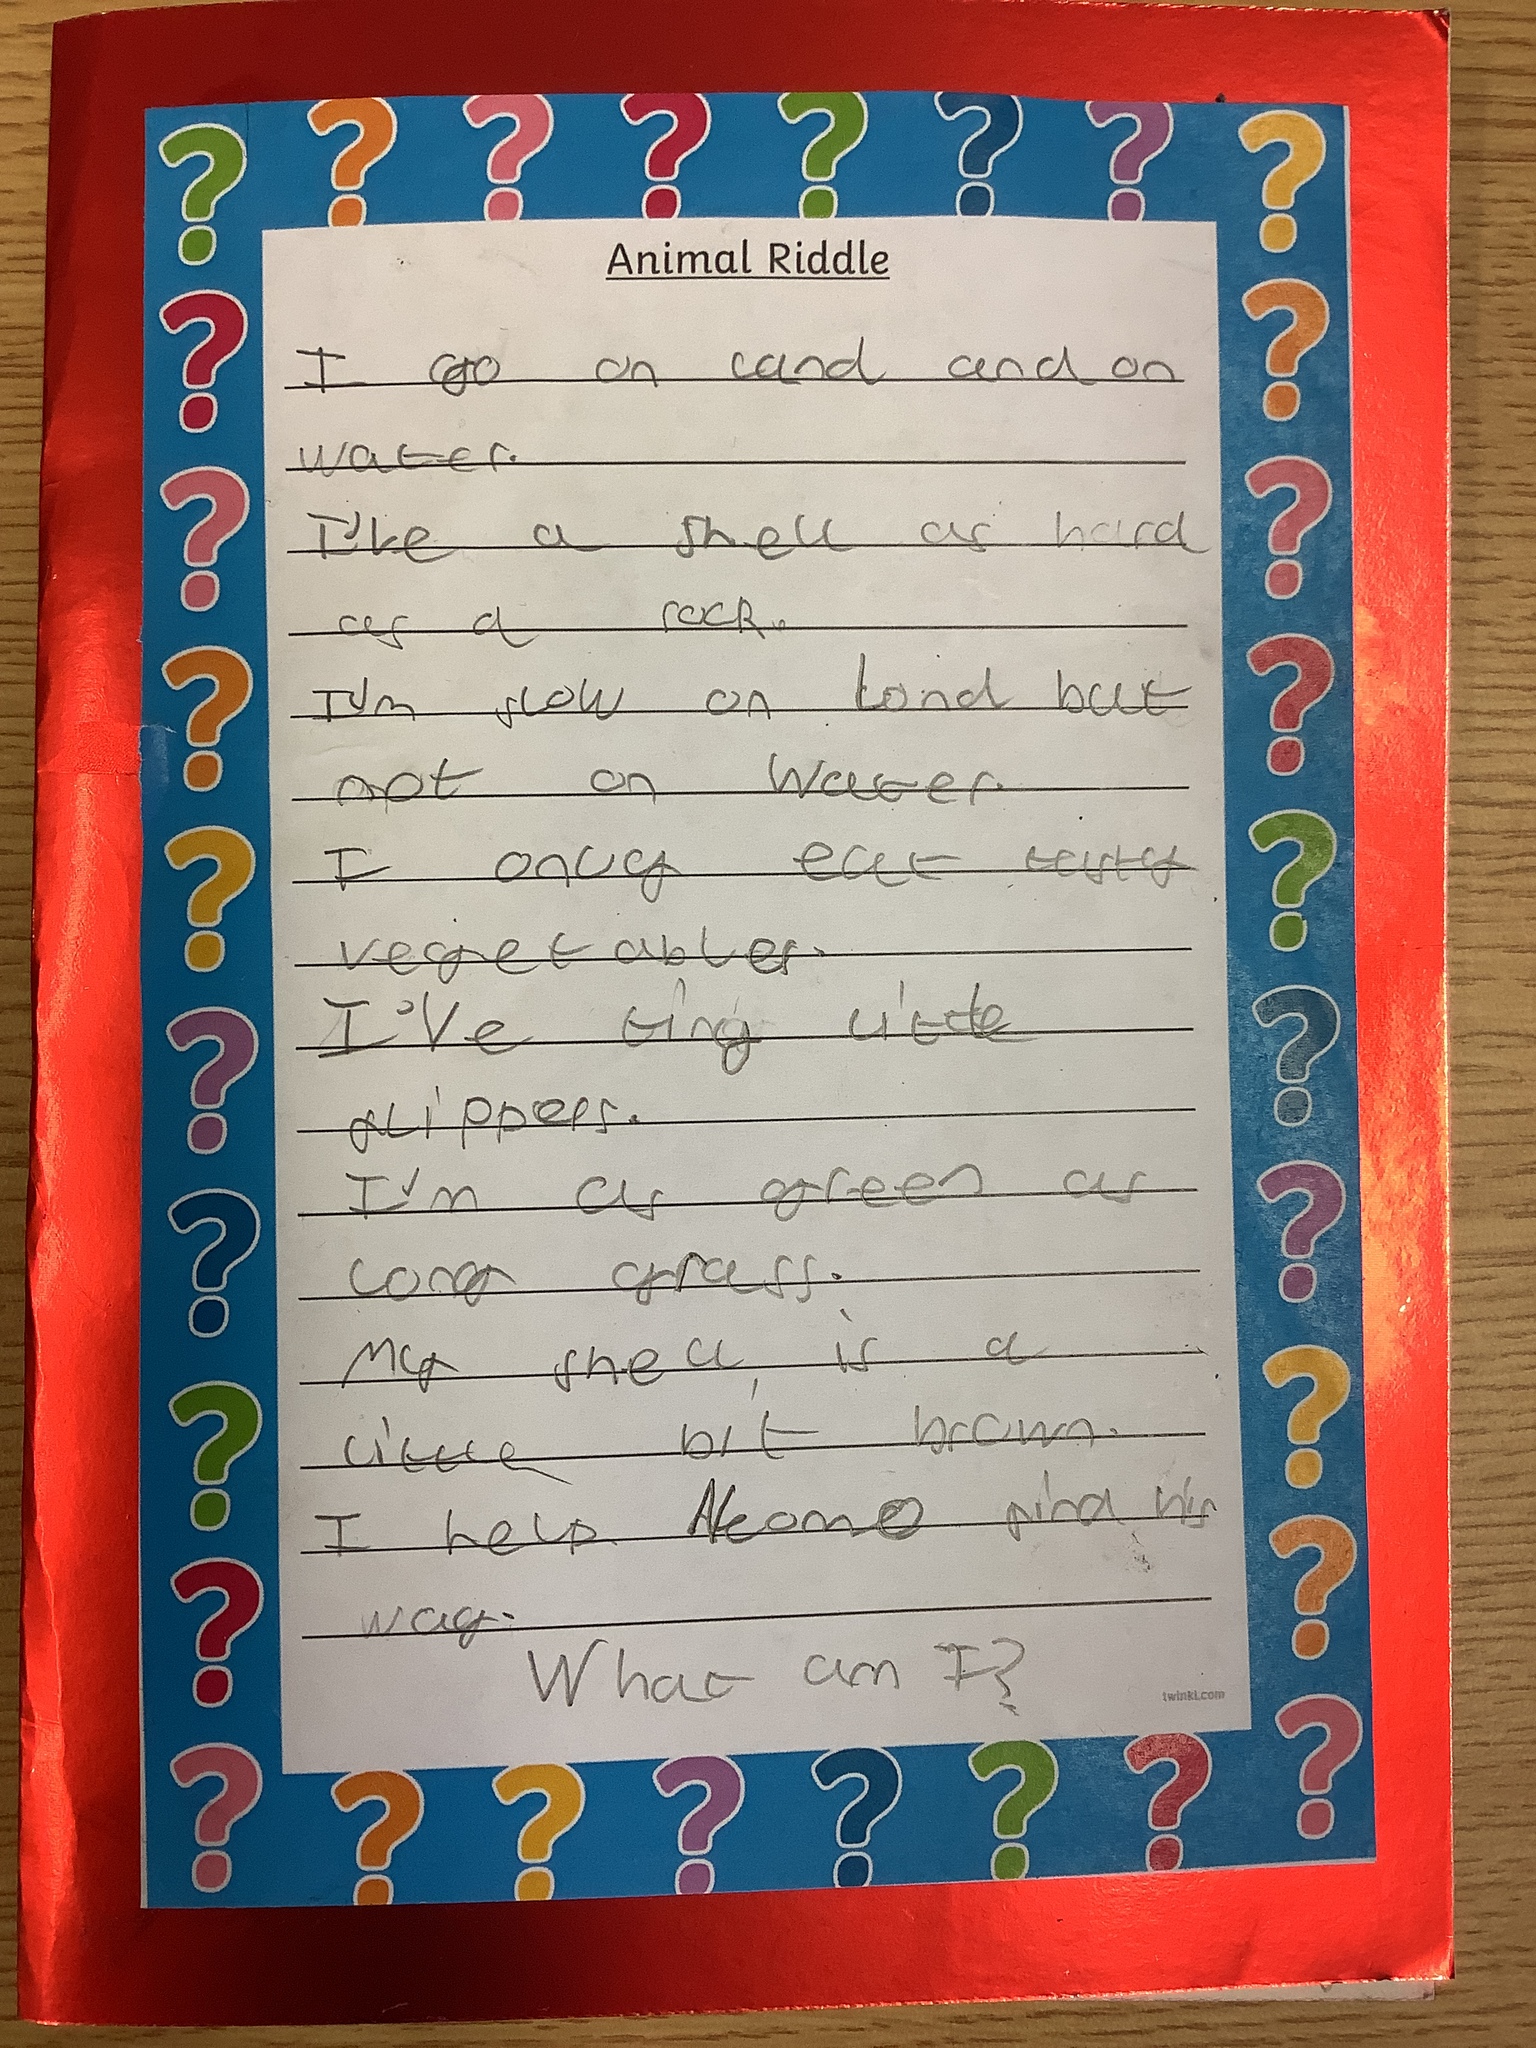 Animal Riddle
I go on land and on
water.
I've a shell as hard
as a rock.
I'm slow on land but
not on water.
I only eat tasty
vegetables.
I've tiny little
flippers.
I'm as green as
long grass.
My shell is a
little bit brown.
I help Neomo find his
way.
What am I?
twinkl.com